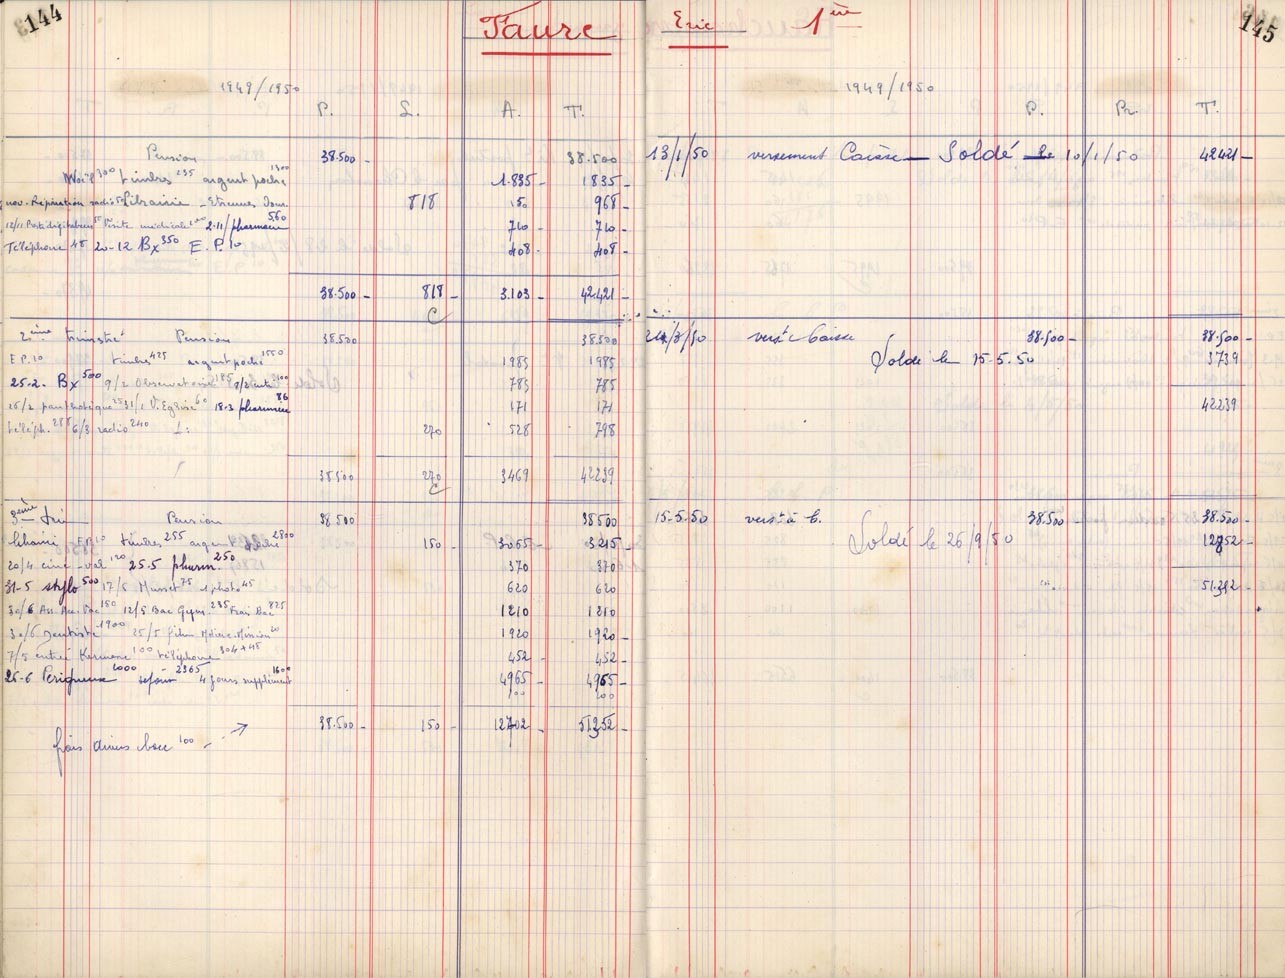 144
Faure Eric 1ère
145
1949/1950
P. L. A. T.
Pension 38.500 - 38.500
Noël 300 timbres 235 argent poche 1300 1.835 - 1835 -
nov. Réparation radio Librairie - Etrennes dom. 818 150 968 -
visite médicale 2-11/pharmacie 560 710 - 710 -
Téléphone 48 20-12 Bx 350 E.P. 10 408 - 408 -
38.500 - 818 - 3.103 - 42.421 -
C
2ème trimestre Pension 38.500 38.500
E.P. 10 timbres 425 argent poche 1550 1985 1985
25-2. Bx 500 9/2 Observatoire 185 100 785 785
26/2 25 31/1 V. Eglise 60 18-3 pharmacie 86 171 171
téléph. 288 6/3 radio 240 270 528 798
38500 270 3469 42239
C
3ème Tri Pension 38.500 38500
E.P. 10 timbres 255 argent poche 2800 150 - 3065 - 3215 -
20/4 ciné - 120 25-5 pharm. 250 370 370
31-5 stylo 500 17/5 Musset 75 1 photo 45 620 620
30/6 150 12/5 Bac Gym. 235 Frais Bac 825 1210 1210
30/6 Dentiste 1900 25/5 film 20 1920 1920 -
7/5 entrée Kermesse 100 téléphone 304+45 452 - 452 -
26-6 Périgueux 1000 séjour 2365 4 jours supplément 1600 4965 - 4965 -
100 100
38.500 - 150 - 12702 - 51352 -
frais divers bacc 100 -
1949/1950
P. Pr. T.
13/1/50 versement Caisse - Soldé le 10/1/50 42421 -
verst Caisse 38.500 - 38.500 -
Soldé le 15-5.50 3739
42239
15-5.50 verst à C. 38.500 - 38.500 -
Soldé le 26/9/50 12852 -
51.352 -